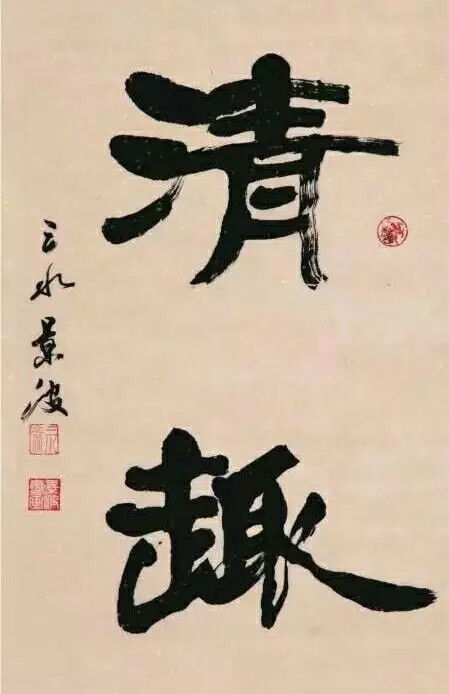 清趣
三水景波